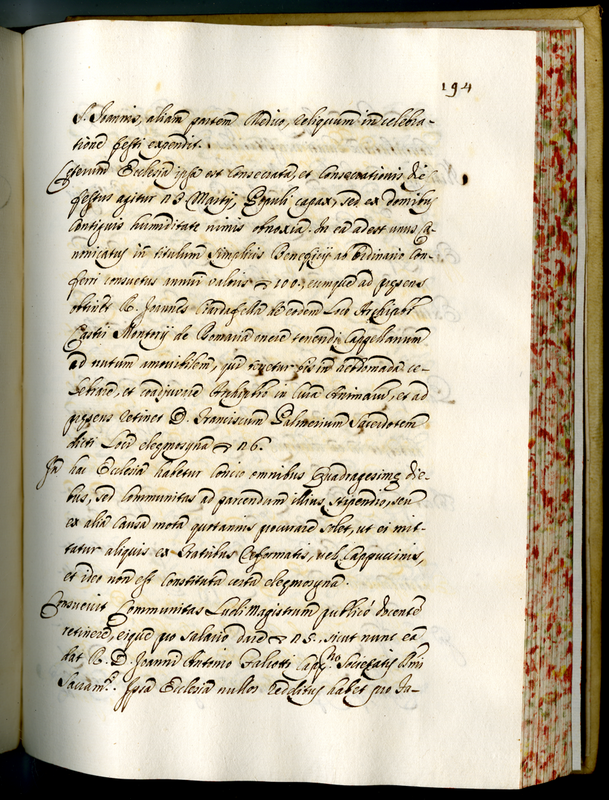 194
S. Joannis, aliam partem Medico, reliquum in celebra-
tione festi expendit.
Ceterum Ecclesia ipsa est consecrata, et consecrationis die
festus agitur n 3 Martij, Populi capax, sed ex domibus
contiguis humiditate nimis obnoxia. In ea adest unus Ca-
nonicatus in titulum simplicis Beneficij ab Ordinario con-
ferri consuetus annui valoris 100, eumque ad presens
obtinet R. Joannes Ciardafella de eodem Loco Archipbr
Castri Montorij de Romania onere tenendi Cappellanum
ad nutum amovibilem, qui tenetur bis in hebdomada ce-
lebrare, et coadjuvare Archipbro in Cura Animarum, et ad
presens retinet D. Franciscum Palmerium Sacerdotem
dicti Loci elegmosyna n 6.
In hac Ecclesia habetur Concio omnibus Quadragesime die-
bus, sed Communitas ad parcendum illius stipendio, seu
ex alia causa mota quotannis procurare solet, ut ei mit-
tatur aliquis ex Fratribus Reformatis, vel Cappuccinis,
et ideo non est constituta certa elegmosyna.
Consuevit Communitas Ludi Magistrum publicè docente
retinere, eique pro salario dare n 5. sicut nunc ea
dat R. D. Joanni Antonio Galiotti Capp.no Societatis SSmi
Sacram.ti. Ipsa Ecclesia nullos redditus habet pro Fa-